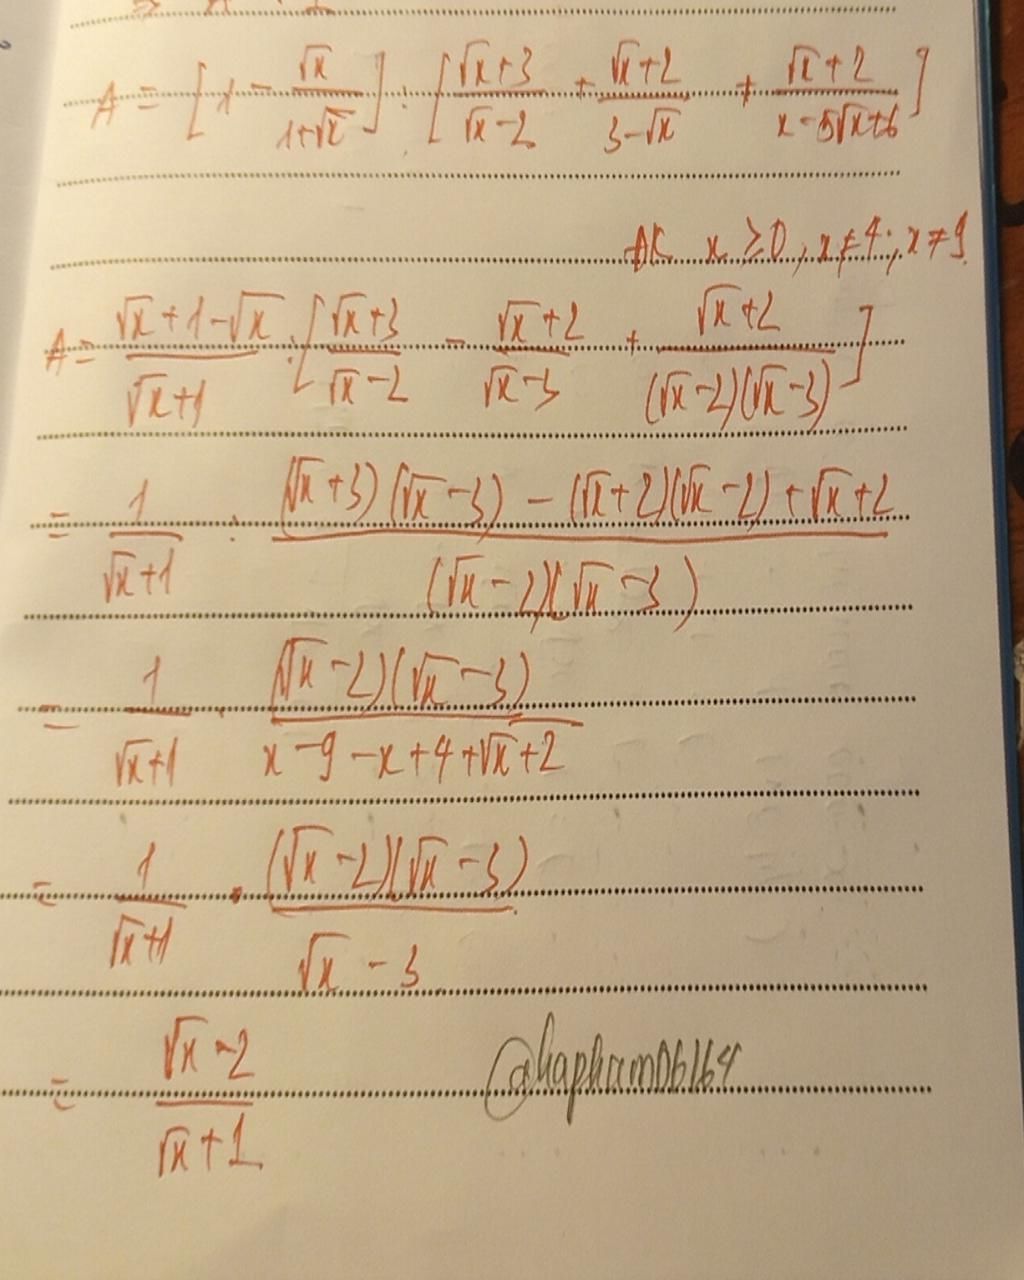 A = [1 - √x/(1+√x)] : [(√x+3)/(√x-2) + (√x+2)/(3-√x) + (√x+2)/(x-5√x+6)]
ĐK x ≥ 0, x ≠ 4; x ≠ 9
A = (√x+1-√x)/(√x+1) : [(√x+3)/(√x-2) - (√x+2)/(√x-3) + (√x+2)/((√x-2)(√x-3))]
= 1/(√x+1) : ((√x+3)(√x-3) - (√x+2)(√x-2) + √x+2)/((√x-2)(√x-3))
= 1/(√x+1) · ((√x-2)(√x-3))/(x-9-x+4+√x+2)
= 1/(√x+1) · ((√x-2)(√x-3))/(√x-3)
= (√x-2)/(√x+1)
@hapham06164